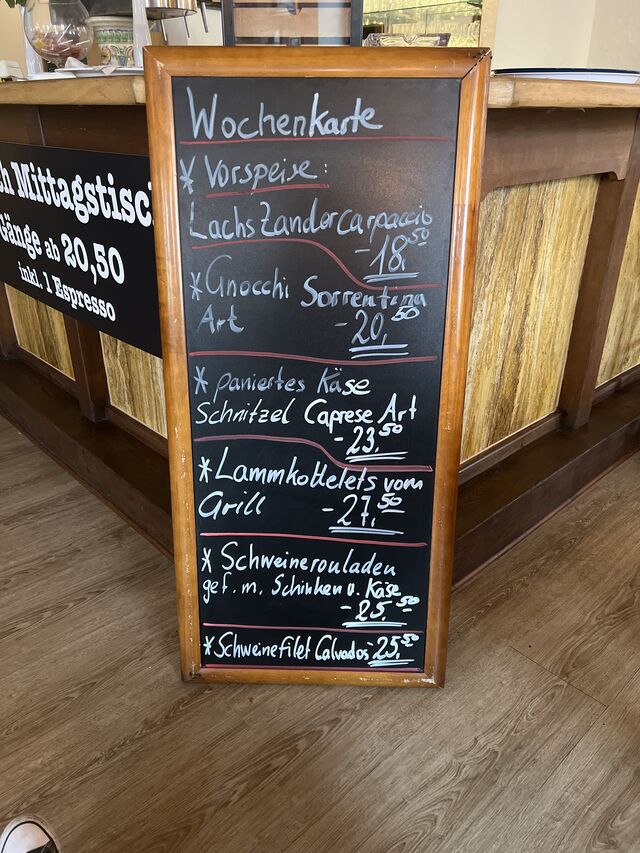 Wochenkarte
* Vorspeise:
Lachs Zandercarpaccio
-18,50
* Gnocchi Sorrentina
Art -20,50
* paniertes Käse
Schnitzel Caprese Art
-23,50
* Lammkottelets vom
Grill -27,50
* Schweinerouladen
gef. m. Schinken u. Käse
-25,50
* Schweinefilet Calvados 25,50
h Mittagstisch
Gänge ab 20,50
inkl. 1 Espresso